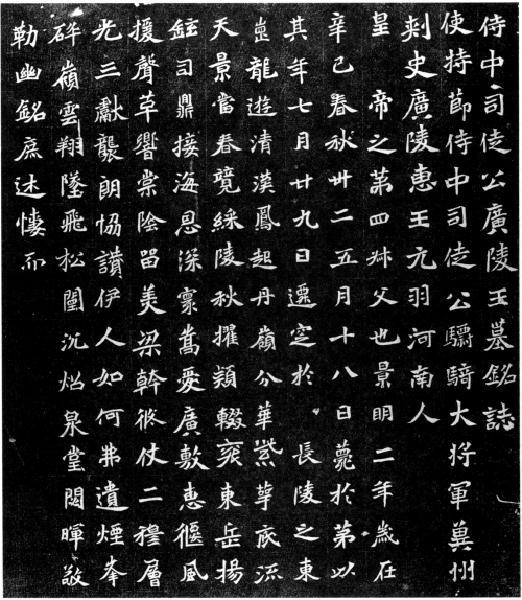 侍中司徒公廣陵王墓銘誌
使持節侍中司徒公驃騎大將軍冀州
刺史廣陵惠王元羽河南人
皇帝之第四叔父也景明二年歲在
辛巳春秋卅二五月十八日薨於第以
其年七月廿九日遷窆於長陵之東
崗龍遊清漢鳳起丹嶺分華紫萼底流
天景當春競綵陵秋擢穎輟袞東岳揚
鉉司鼎接海恩深稟嵩愛廣敷惠偃風
援聲革響棠陰留美梁幹攸仗二穆層
光三獻襲朗恊讚伊人如何弗遺煙峯
碎嶺雲翔墜飛松闈沉炤泉堂閟暉敬
勒幽銘庶述悽而